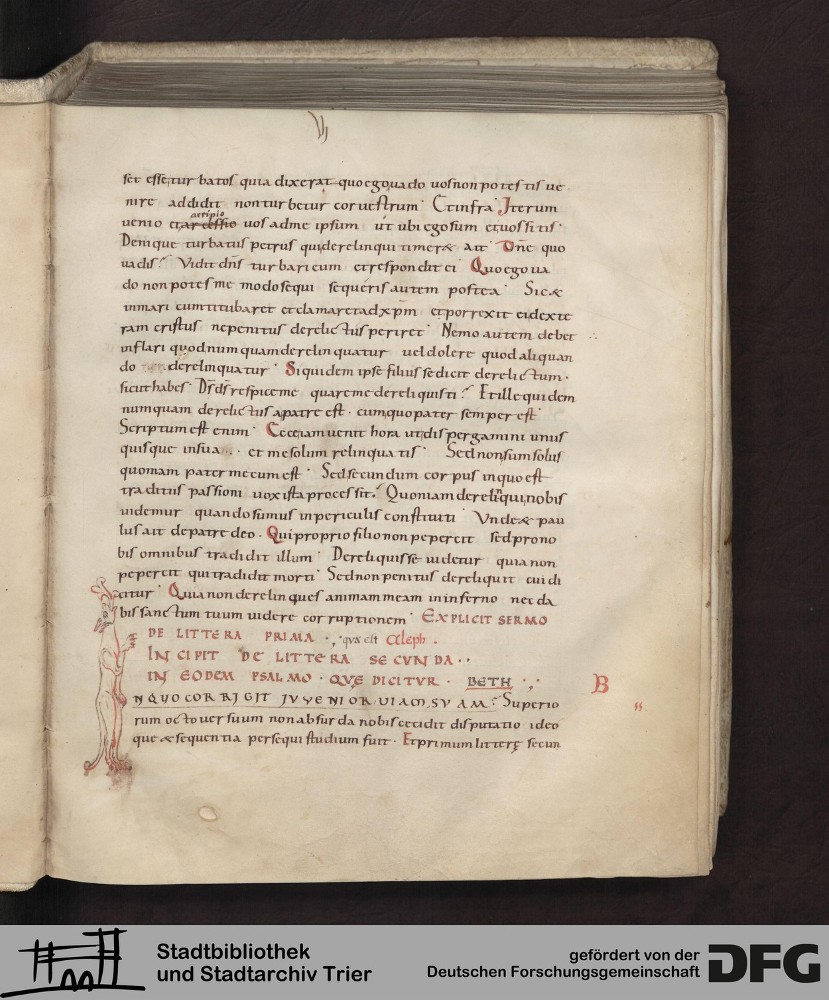 set essetur batos quia dixerat quo ego uado uos non potestis ue
nire addidit non turbetur cor uestrum Et infra Iterum
accipio
uenio et arcessio uos ad me ipsum ut ubi ego sum et uos sitis
Denique turbatus petrus qui derelinqui timeræ ait Dn̄e quo
uadis? Vidit dn̄s turbari eum et respondit ei Quo ego ua
do non potes me modo sequi sequeris autem postea Sic &
in mari cum titubaret et clamaret ad xp̄m et porrexit ei dexte
ram cristus ne penitus derelictus periret Nemo autem debet
inflari quod numquam derelinquatur uel dolere quod aliquan
do derelinquatur Siquidem ipse filius se dicit derelictum.
sicut habes Ds̄ ds̄ respice me quare me dereliquisti? Et ille quidem
numquam derelictus a patre est. cum quo pater semper est
Scriptum est enim Ecce iam uenit hora ut dispergamini unus
quisque in sua et me solum relinquatis Sed non sum solus
quoniam pater mecum est Sed secundum corpus in quo est
traditus passioni uox ista processit. Quoniam derelinqui nobis
uidemur quando sumus in periculis constituti Vnde & pau
lus ait de patre deo. Qui proprio filio non pepercit sed pro no
bis omnibus tradidit illum Dereliquisse uidetur quia non
pepercit qui tradidit morti Sed non penitus dereliquit cui di
citur Quia non derelinques animam meam in inferno nec da
bis sanctum tuum uidere corruptionem EXPLICIT SERMO
DE LITTERA PRIMA quæ est Aleph.
INCIPIT DE LITTERA SECVNDA..
IN EODEM PSALMO. QVE DICITVR. BETH
B
N QVO CORRIGIT IVVENIOR VIAM SVAM? Superio
rum octo uersuum non absurda nobis cecidit disputatio ideo
que & sequentia persequi studium fuit. Et primum litterę secun
Stadtbibliothek
und Stadtarchiv Trier
gefördert von der
Deutschen Forschungsgemeinschaft
DFG